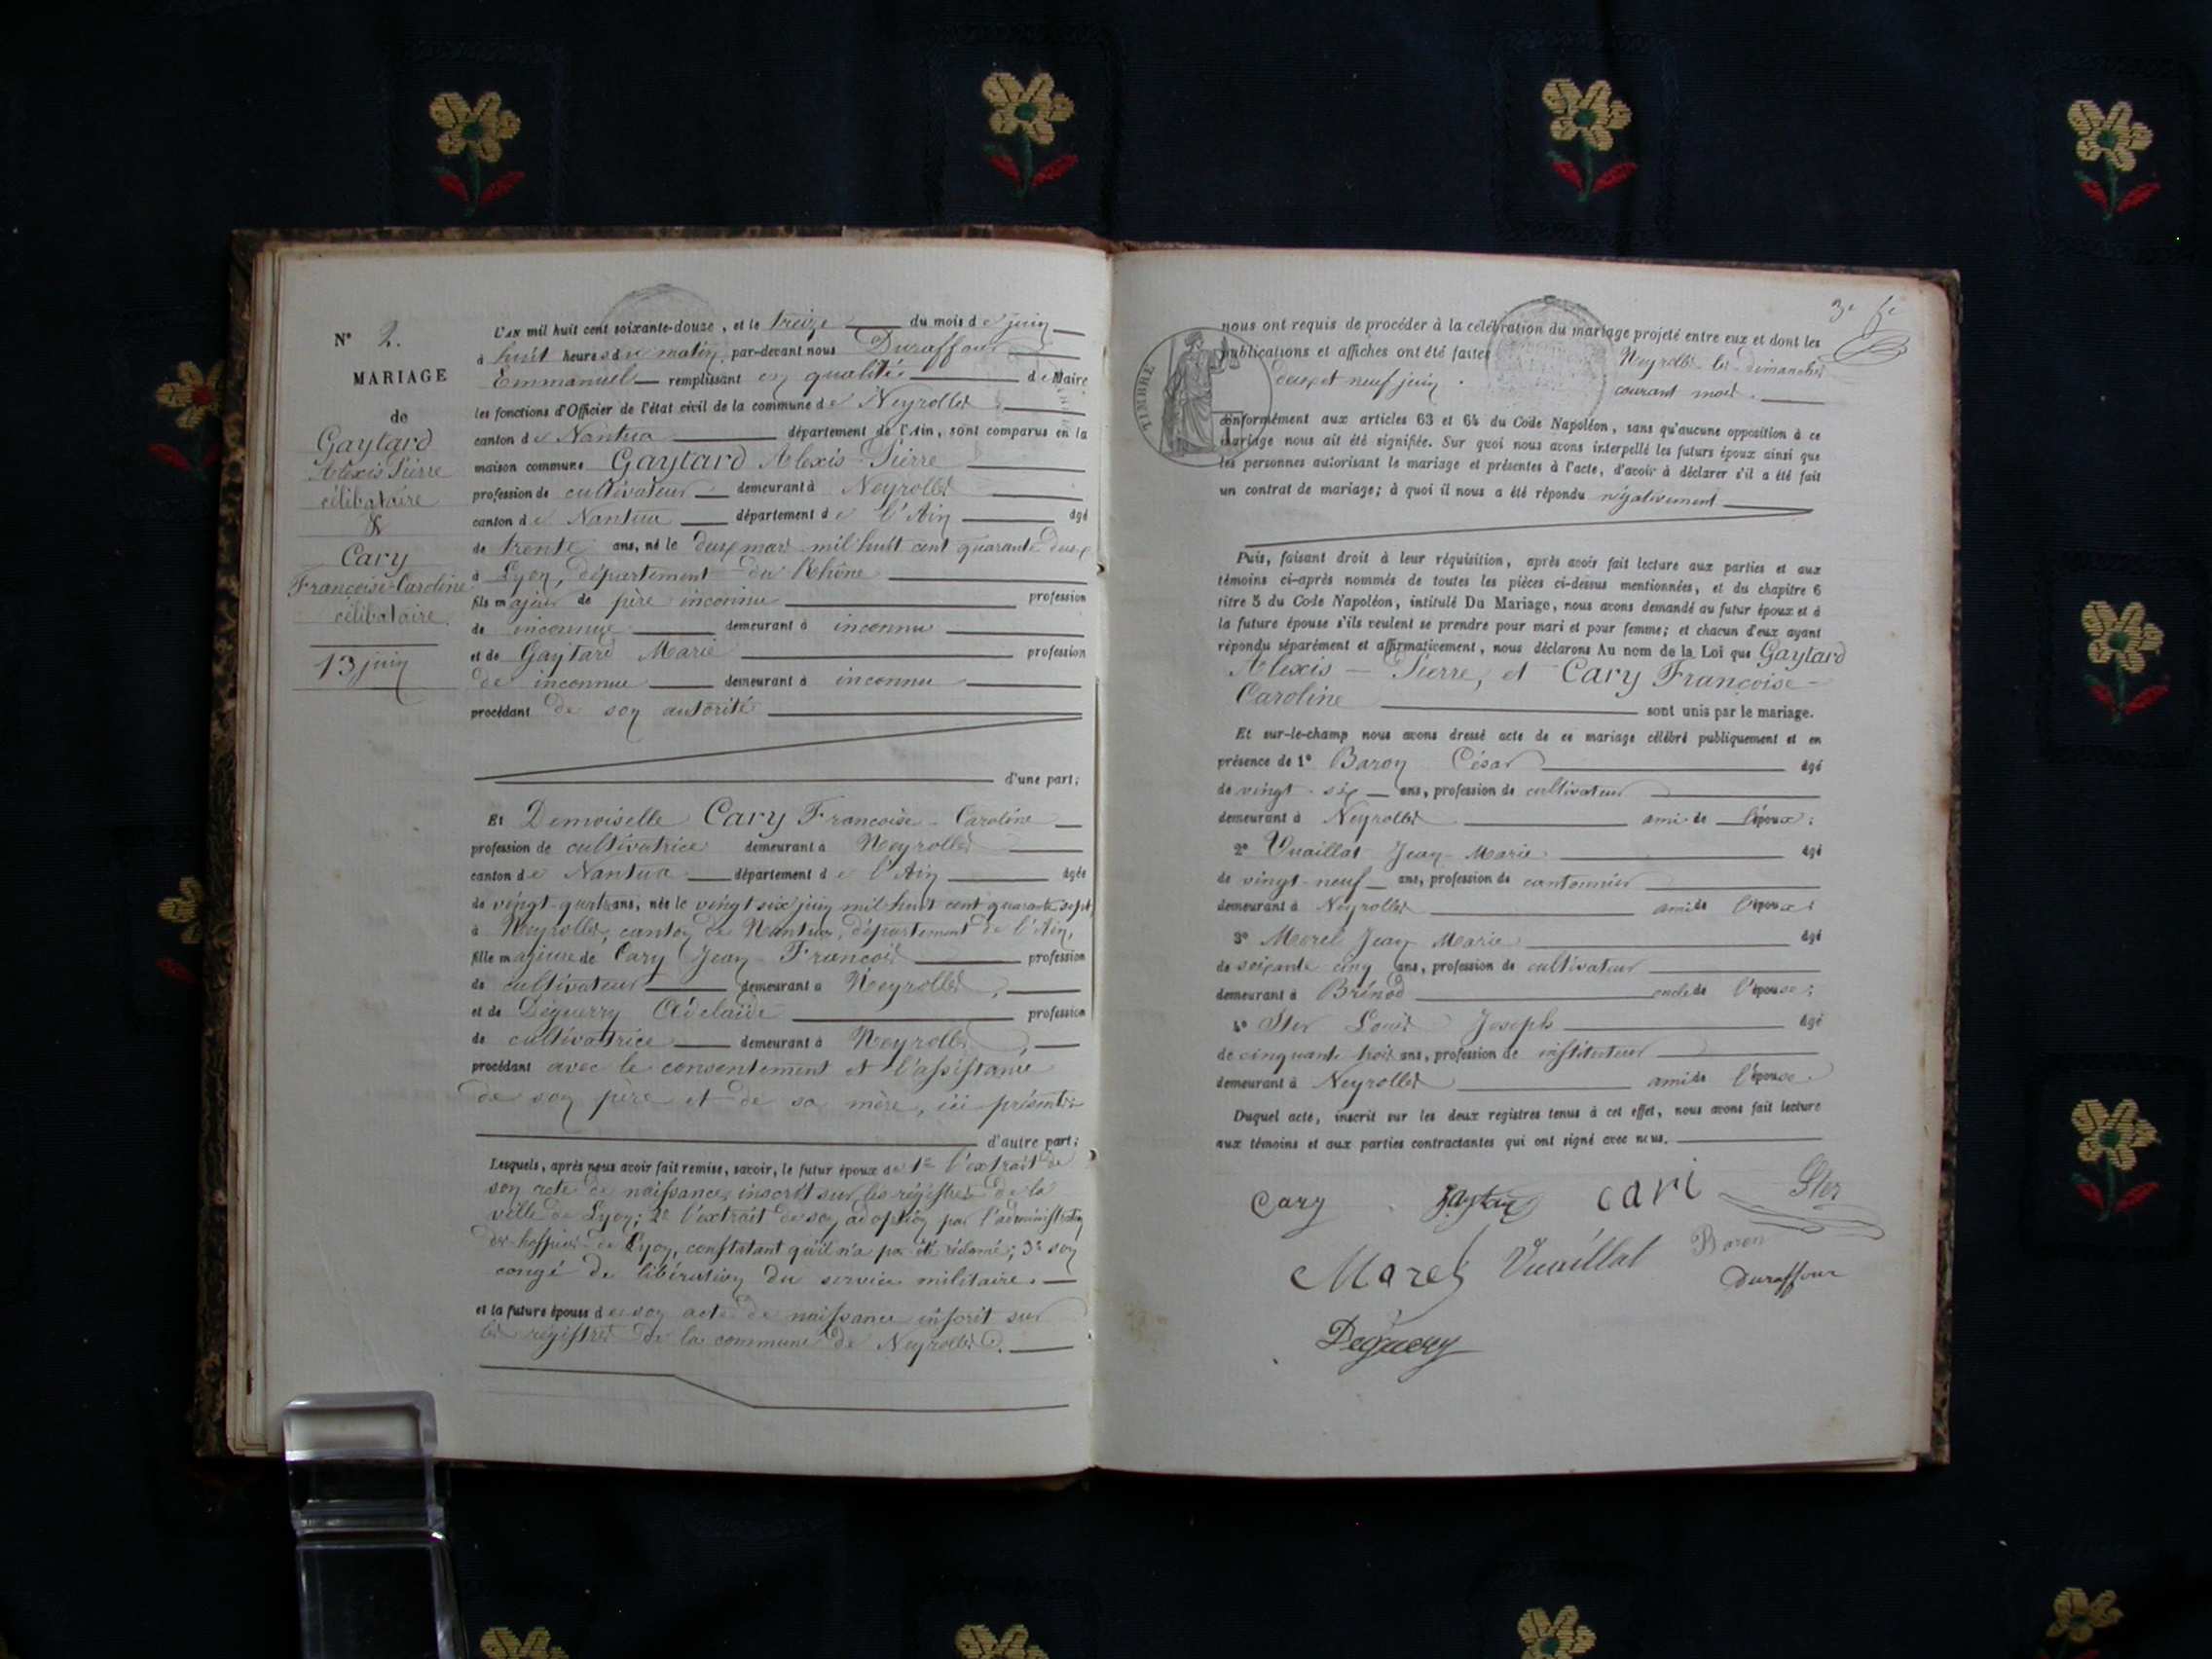 N° 2.
MARIAGE
de
Gaytard
Alexis Pierre
célibataire
&
Cary
Françoise-Caroline
célibataire.
13 juin
L'AN mil huit cent soixante-douze, et le treize du mois de juin
à huit heures du matin, par-devant nous Duraffour
Emmanuel remplissant en qualité de Maire
les fonctions d'Officier de l'état civil de la commune de Neyrolles
canton de Nantua département de l'Ain, sont comparus en la
maison commune Gaytard Alexis-Pierre
profession de cultivateur demeurant à Neyrolles
canton de Nantua département de l'Ain âgé
de trente ans, né le deux mars mil huit cent quarante deux
à Lyon, département du Rhône
fils majeur de père inconnu profession
de inconnue demeurant à inconnu
et de Gaytard Marie profession
de inconnue demeurant à inconnu
procédant de son autorité
d'une part;
Et Demoiselle Cary Françoise-Caroline
profession de cultivatrice demeurant à Neyrolles
canton de Nantua département de l'Ain âgée
de vingt-quatre ans, née le vingt six juin mil huit cent quarante sept,
à Neyrolles, canton de Nantua, département de l'Ain,
fille majeure de Cary Jean-François profession
de cultivateur demeurant à Neyrolles,
et de Déguerry Adélaïde profession
de cultivatrice demeurant à Neyrolles,
procédant avec le consentement et l'assistance
de son père et de sa mère, ici présents
d'autre part;
Lesquels, après nous avoir fait remise, savoir, le futur époux de 1° l'extrait de
son acte de naissance, inscrit sur les régistres de la
ville de Lyon; 2° l'extrait de son adoption par l'administration
des hospices de Lyon, constatant qu'il n'a pas été réclamé; 3° son
congé de libération du service militaire.
et la future épouse de son acte de naissance inscrit sur
les régistres de la commune de Neyrolles.
3e
nous ont requis de procéder à la célébration du mariage projeté entre eux et dont les
publications et affiches ont été faites Neyrolles les dimanches
deux et neuf juin courant mois.
TIMBRE
conformément aux articles 63 et 64 du Code Napoléon, sans qu'aucune opposition à ce
mariage nous ait été signifiée. Sur quoi nous avons interpellé les futurs époux ainsi que
les personnes autorisant le mariage et présentes à l'acte, d'avoir à déclarer s'il a été fait
un contrat de mariage; à quoi il nous a été répondu négativement
Puis, faisant droit à leur réquisition, après avoir fait lecture aux parties et aux
témoins ci-après nommés de toutes les pièces ci-dessus mentionnées, et du chapitre 6
titre 5 du Code Napoléon, intitulé Du Mariage, nous avons demandé au futur époux et à
la future épouse s'ils veulent se prendre pour mari et pour femme; et chacun d'eux ayant
répondu séparément et affirmativement, nous déclarons Au nom de la Loi que Gaytard
Alexis-Pierre, et Cary Françoise-
Caroline sont unis par le mariage.
Et sur-le-champ nous avons dressé acte de ce mariage célébré publiquement et en
présence de 1° Baron César âgé
de vingt-six ans, profession de cultivateur
demeurant à Neyrolles ami de l'époux;
2° Vuaillat Jean-Marie âgé
de vingt-neuf ans, profession de cantonnier
demeurant à Neyrolles ami de l'époux;
3° Morel Jean Marie âgé
de soixante cinq ans, profession de cultivateur
demeurant à Brénod oncle de l'épouse;
4° Ster Louis Joseph âgé
de cinquante trois ans, profession de instituteur
demeurant à Neyrolles ami de l'épouse.
Duquel acte, inscrit sur les deux registres tenus à cet effet, nous avons fait lecture
aux témoins et aux parties contractantes qui ont signé avec nous.
Cary Gaytard cari Ster
Morel Vuaillat Baron
Duraffour
Deguery